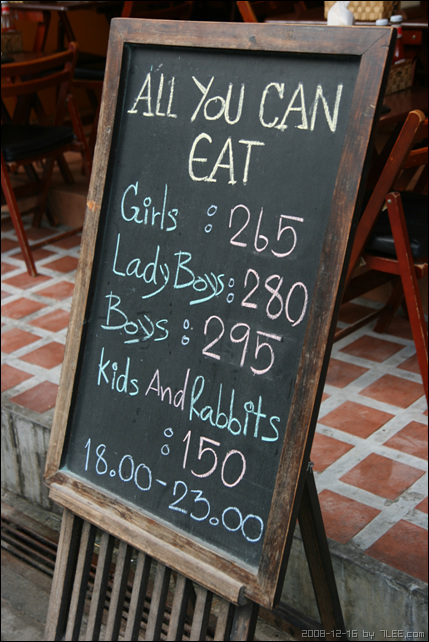 ALL YOU CAN
EAT
Girls : 265
Lady Boys : 280
Boys : 295
Kids And Rabbits
: 150
18.00-23.00
2008-12-16 by 7LEE.com